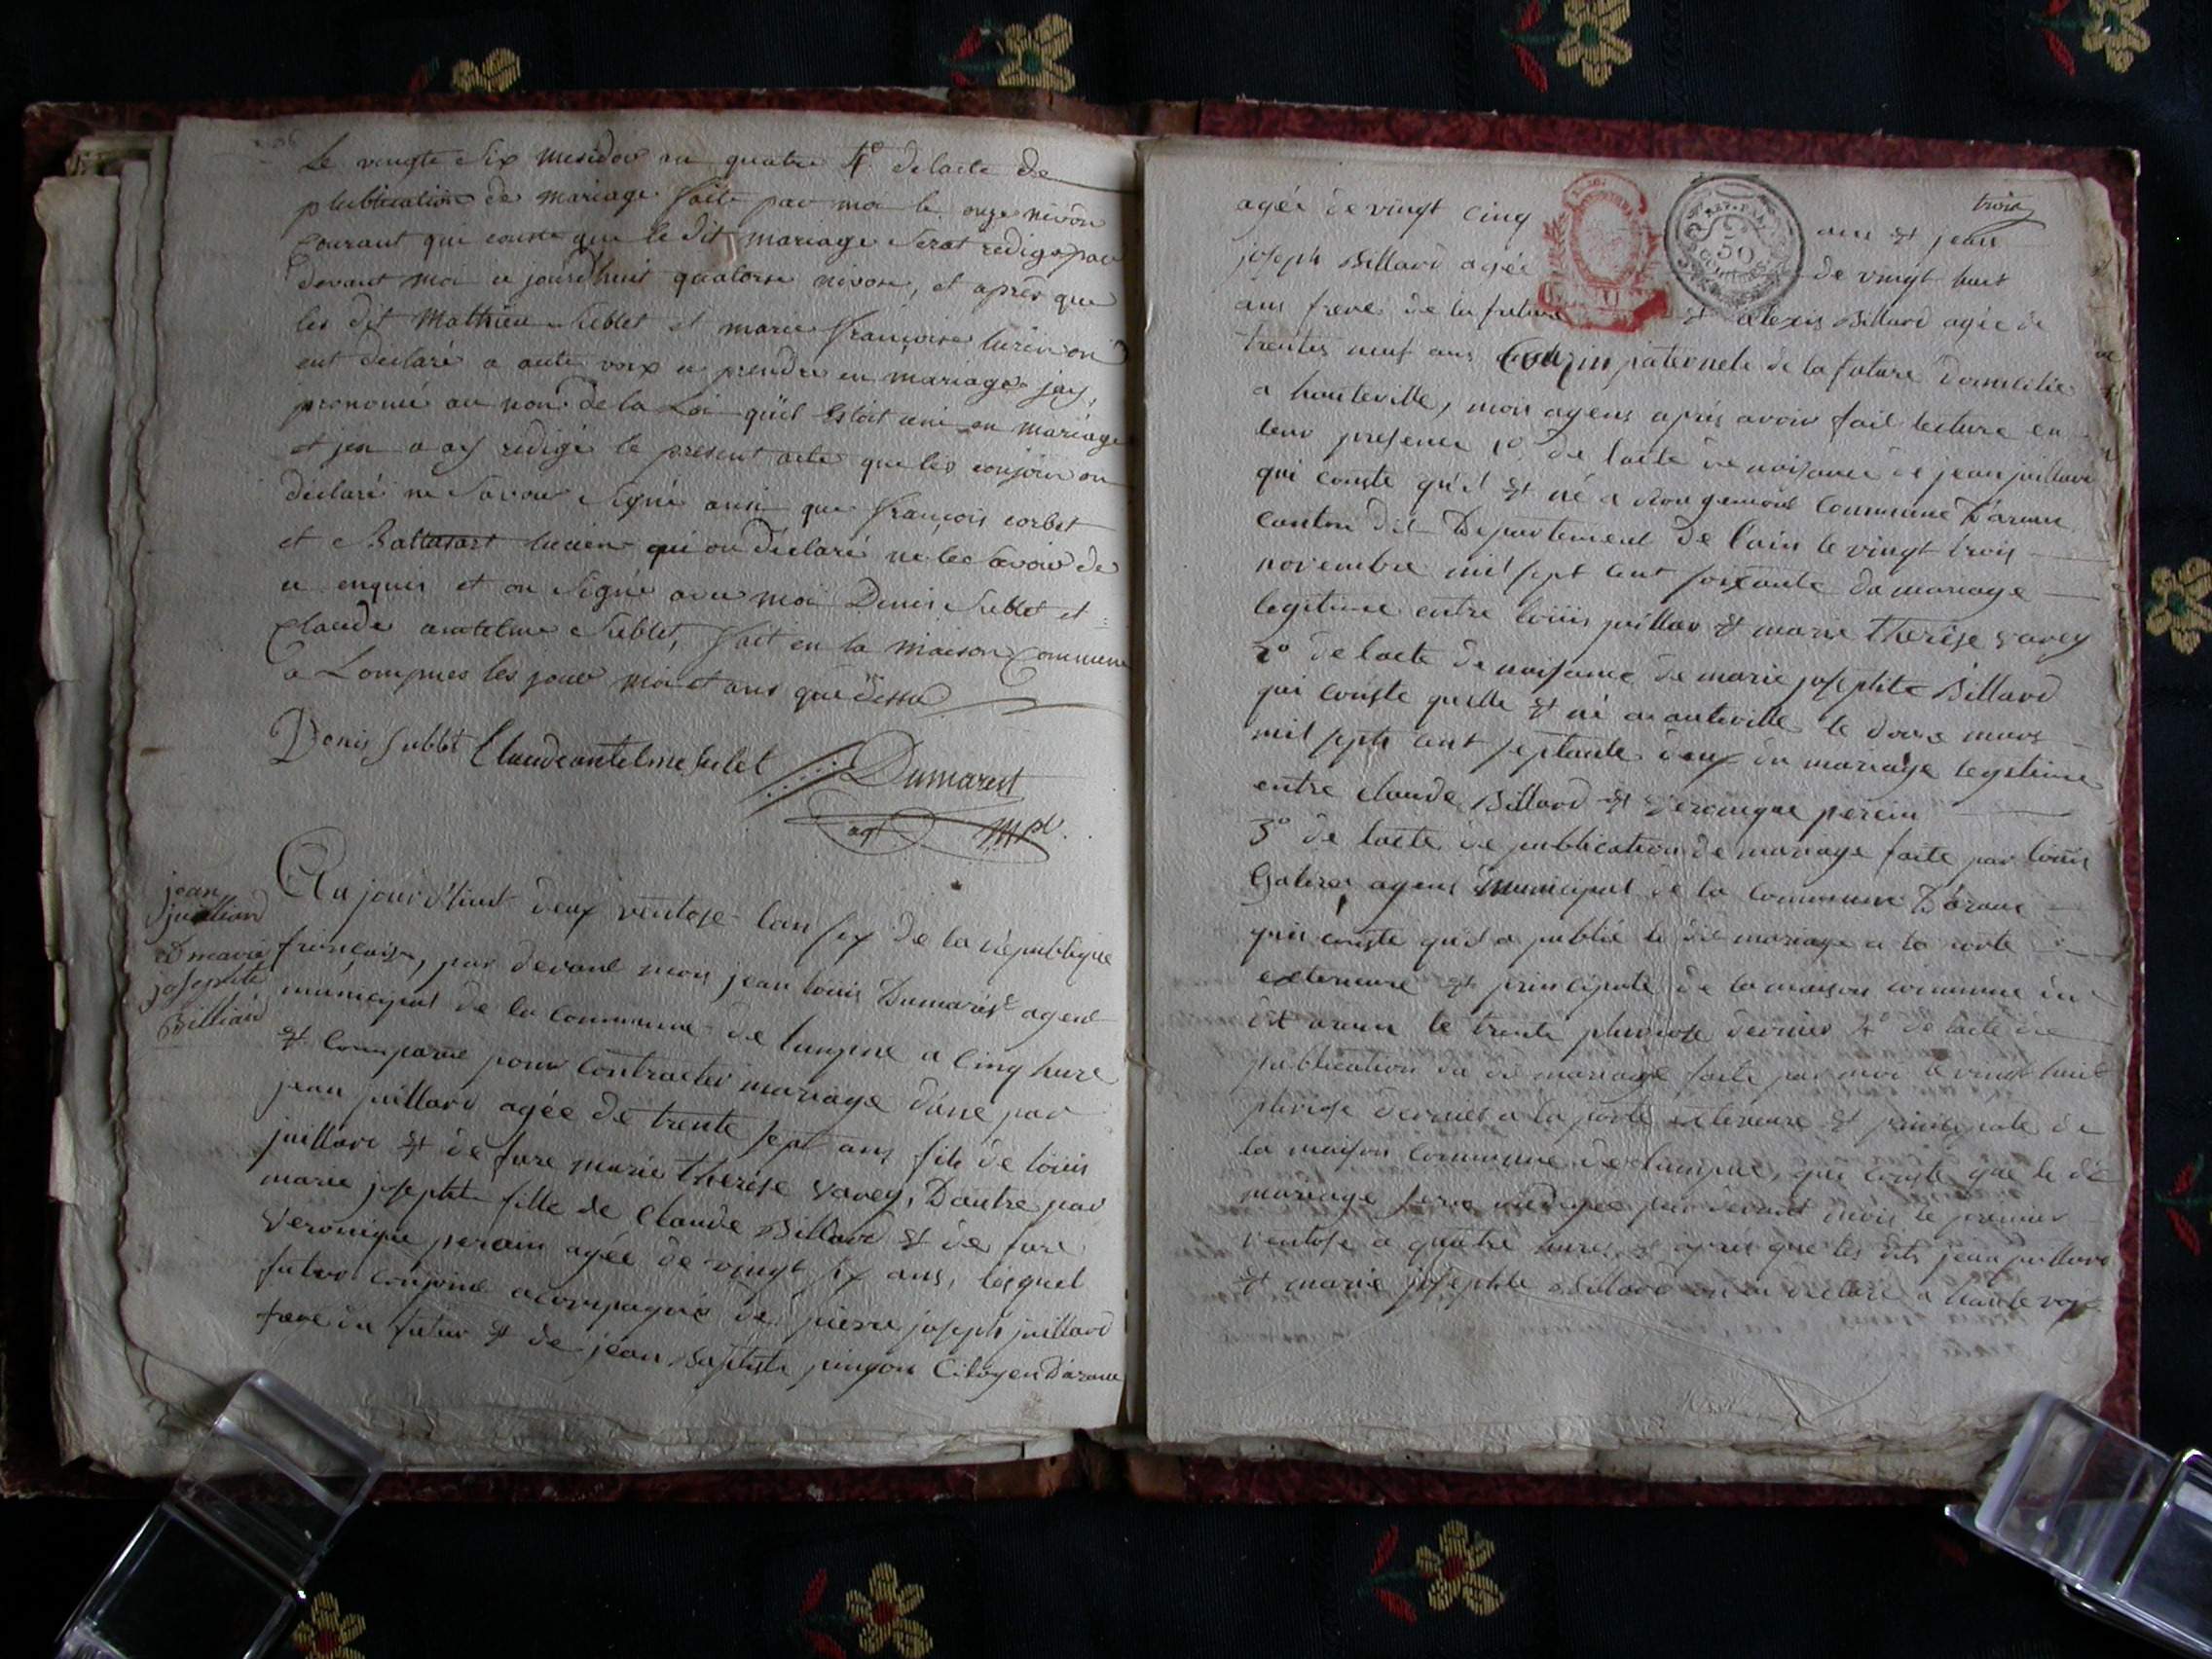 Le vingte Six mesidor an quatre 4° de lacte de
publication de mariage faite par moi le onze nivôse
Courant qui conste que le dit mariage Serat redigé par
devant moi ce jourd'huit quatorse nivose, et après que
les dit Mathieu Sublet et marie françoise lucien on
ent déclaré a aute voix ce prendre en mariage jay,
prononcé au nom de la Loi qu'il Estoit uni en mariage
et jen a ay redigé le present acte que les conjoin on
déclaré ne Savoir Signé ainsi que françois corbet
et Baltasart lucien qui on déclaré ne le Savoir de
ce enquis et on Signé avec moi Denis Sublet et
Claude antelme Sublet, fait en la maison Commune
a Lompnes les jour moi et ans que dessu
Denis Sublet Claude antelme sublet
Dumarest
agt mpl.
jean
juillard
& marie
josephte
Billiard
Au jourdhuit deux ventose lan six de la république
françoise, par devant mois jean louis Dumarest agent
municipal de la commune de lompne a Cinq hure
& comparue pour contracter mariage dune par
jean juillard agée de trente sept ans fils de louis
juillard & de fure marie therèse varey, Dautre par
marie josephte fille de Claude Billard & de fure
veronique perain agée de vingt six ans, lesquel
futur conjoint acompagnié de pierre joseph juillard
frere du futur & de jean Baptiste pingon Citoyen D'arane
trois
agée de vingt cinq ans & jean
joseph Billard agée de vingt huit
ans frere de la future & alexis Billard agée de
trentes neuf ans Cousin paternele de la future domicilié
a hauteville, mois agens après avoir fait lecture en
leur presence 1° de lacte de naissance de jean juillard
qui conste qu'il & né a rougemont Commune D'arane
canton dit Departement de lain le vingt trois
novembre mil sept cent soixante du mariage
legitime entre louis juillar & marie therèse varey
2° de lacte de naissance de marie josephte Billard
qui conste quelle & né a auteville le douze mars
mil septs cent septante deux du mariage legitime
entre Claude Billard & veronique perain
3° de lacte de publication de mariage faite par louis
agens municipal de la commune D'arane
qui conste qu'il a publié le dit mariage a la porte
exterieure & principale de la maison commune du
dit arane le trente pluviose dernier 4° de lacte de
publication du dit mariage faite par moi le vingt huit
pluviose dernier a la porte exterieure & principale de
la maison Commune de lompne, qui conste que le dit
mariage sera redigée par devant mois le premier
ventose a quatre hures & apres que les dits jean juillard
& marie josephte Billard on en declaré a haute voix